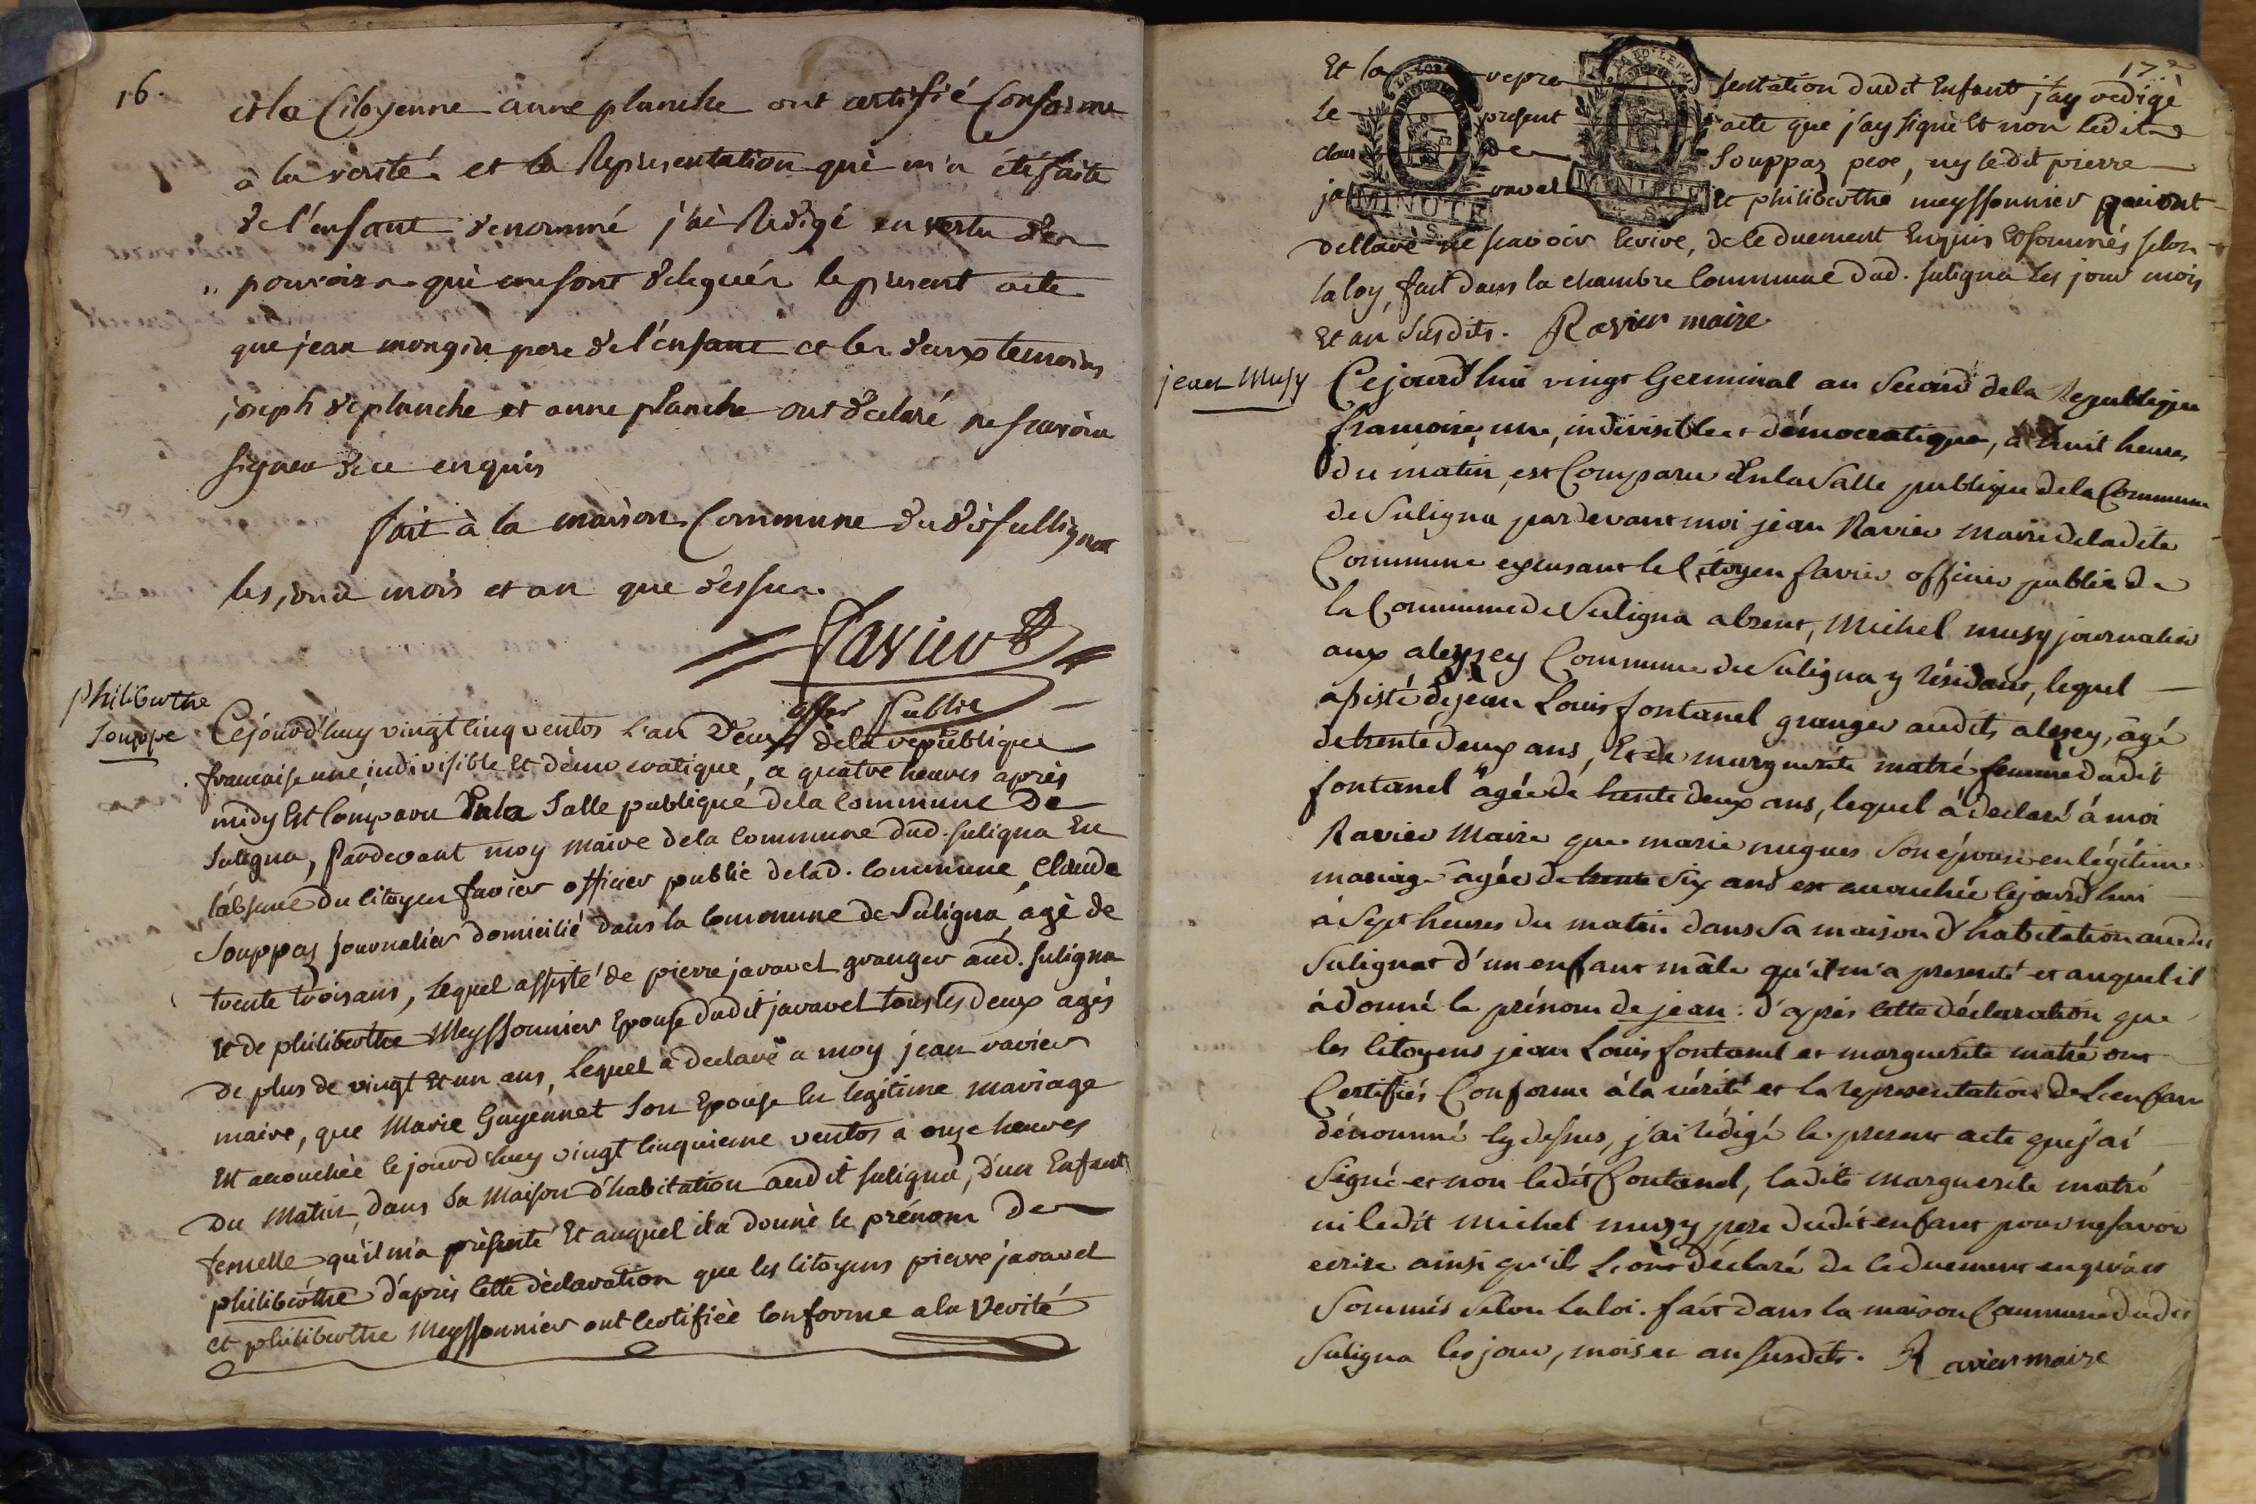 16.
et la Citoyenne anne planche ont certifié Conforme
à la verité et la Representation qui m'a été faite
de l'enfant denommé j'ai Redigé en vertu des
pouvoirs qui me sont delegués le present acte
que jean mongin pere de l'enfant et les deux temoins
joseph deplanche et anne planche ont declaré ne scavoir
signer de ce enquis
fait à la maison Commune dudit sullignat
les jour mois et an que dessus.
Favier
offier Public
philiberthe
Souppe
Cejourd'huy vingt cinq ventos L'an Deux dela republique
francaise une, indivisible Et démocratique, a quatre heures après
midy Est Comparu Dans la Salle publique dela commune De
Suligna, Pardevant moy maire dela Commune dud. suligna En
l'absence du citoyen favier officier public delad. commune, Claude
Souppas journalier domicilié dans la commune de Suligna, agé de
trente trois ans, Lequel assisté de pierre javavel granger aud. suligna
Et de philiberthe Meyssonnier Epouse dudit javavel tous les deux agés
De plus de vingt Et un ans, Lequel a declaré a moy jean ravier
maire, que Marie Guyennet Son Epouse En legitime mariage
Est accouchée lejourd'huy vingt cinquieme ventos a onze heures
Du Matin, dans Sa Maison d'habitation audit suligna, D'un Enfant
femelle qu'il m'a présenté Et auquel il a donné le prénom De
philiberthe d'après Cette déclaration que les citoyens pierre javavel
et philiberthe Meyssonnier ont Certifiée Conforme a la Verité
17e
Et la repre sentation dudit Enfant j'ay redigé
Le present acte que j'ay signé Et non ledit
Claude Souppas pere, ny ledit pierre
javavel Et philiberthe meyssonnier qui ont
dellaré ne scavoir Ecrire, de ce duement Enquis Et sommés selon
la loy, fait dans la chambre Commune dud. suligna Les jour mois
Et an susdits. Ravier maire
jean Musy
Cejourd'hui vingt Germinal an Second dela Republique
francoise, une, indivisible et démocratique, à huit heures
du matin, est Comparu dans la Salle publique dela Commune
de Suligna pardevant moi jean Ravier Maire deladite
Commune excusant le Citoyen favier officier public de
la Commune de Suligna absent, Michel musy journalier
aux aleyzey Commune de Suligna y résidant, lequel
assisté de jean Louis fontanel granger audits alezey, âgé
de trente deux ans, Et de marguerite matré femme dudit
fontanel âgée de trente deux ans, lequel à declaré à moi
Ravier Maire que marie nugues Son épouse en légitime
mariage âgée de trente Six ans est accouchée lejourd'hui
à Sept heures du matin dans Sa maison d'habitation audit
Sulignat d'un enfant mâle qu'il m'a presenté et auquel il
à donné le prénom de jean : d'après cette déclaration que
les Citoyens jean Louis fontanel et marguerite matré ont
Certifiés Conforme à la vérité et la representation de L'enfant
dénommé cy dessus, j'ai rédigé le present acte que j'ai
Signé et non ledit fontanel, ladite marguerite matré
ni ledit Michel musy pere dudit enfant pour ne savoir
ecrire ainsi qu'ils L'ont déclaré de ce duement enquis et
Sommés selon la loi. fait dans la maison Commune dudit
Suligna les jour, mois et an susdits. Ravier maire
MINUTE
MINUTE